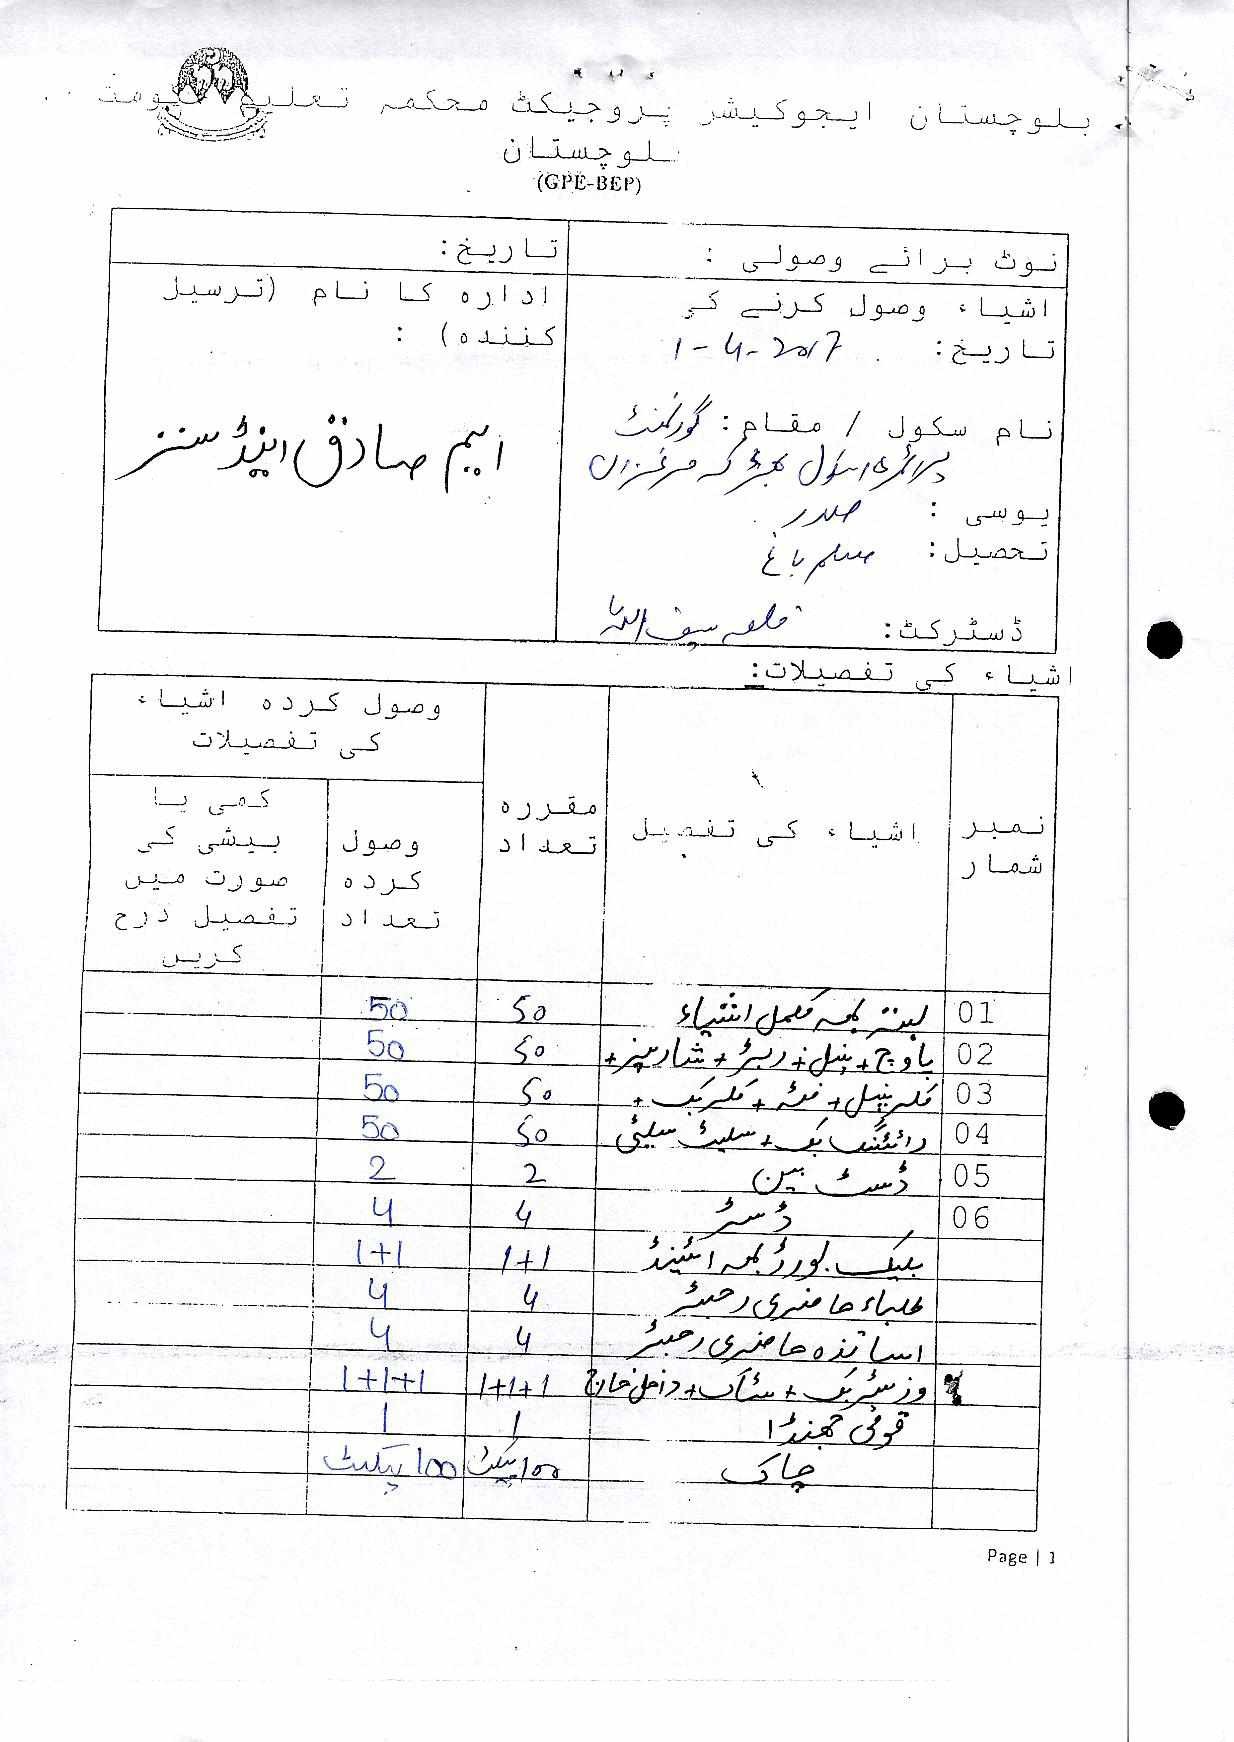 بلوچستان ایجوکیشر پروجیکٹ محکمہ تعلیم
بلوچستان
(GPE-BEP)
نوٹ برائے وصولی :
تاریخ:
اشیاء وصول کرنے کی
تاریخ: 1-4-2017
نام سکول / مقام: گورنمنٹ
پرائمری سکول
یوسی : صدر
تحصیل: مسلم باغ
ڈسٹرکٹ: قلعہ سیف اللہ
ادارہ کا نام (ترسیل
کنندہ) :
ایم صادق اینڈ سنز
اشیاء کی تفصیلات:
نمبر شمار
اشیاء کی تفصیل
مقررہ تعداد
وصول کردہ اشیاء
کی تفصیلات
وصول کردہ تعداد
کمی یا بیشی کی صورت میں تفصیل درج کریں
01 بستہ بمعہ مکمل اشیاء 50 50
02 پاوچ + پنسل + ربڑ + شارپنر + 50 50
03 کلر پنسل + فٹہ + کلر بک + 50 50
04 رائٹنگ بک + سلیٹ سلیٹی 50 50
05 ڈسٹ بین 2 2
06 ڈسٹر 4 4
بلیک بورڈ بمعہ اسٹینڈ 1+1 1+1
طلباء حاضری رجسٹر 4 4
اساتذہ حاضری رجسٹر 4 4
وزیٹر بک + سٹاک + داخل خارج 1+1+1 1+1+1
قومی جھنڈا 1 1
چاک 100 پیکٹ 100 پیکٹ
Page | 1